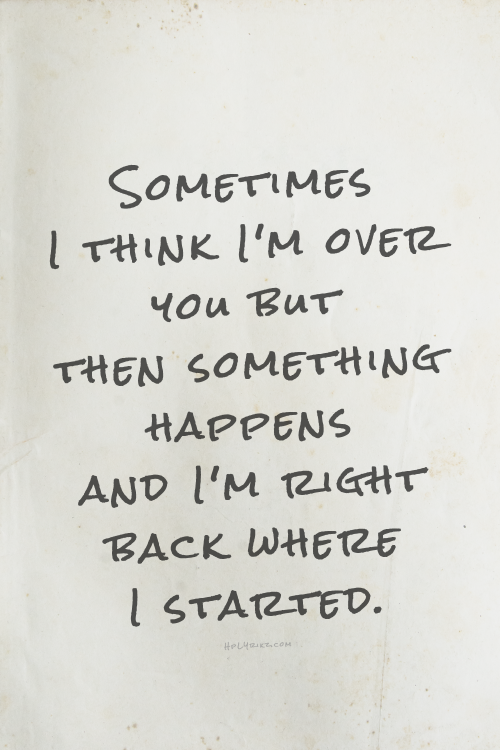 Sometimes
I think I'm over
you but
then something
happens
and I'm right
back where
I started.